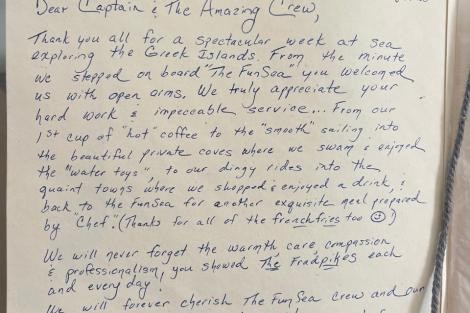 Dear Captain & The Amazing Crew,
Thank you all for a spectacular week at sea
exploring the Greek Islands. From the minute
we stepped on board "The FunSea" you welcomed
us with open arms. We truly appreciate your
hard work & impeccable service... From our
1st cup of "hot" coffee to the "smooth" sailing into
the beautiful private coves where we swam & enjoyed
the "water toys", to our dingy rides into the
quaint towns where we shopped & enjoyed a drink, &
back to the FunSea for another exquisite meal prepared
by "Chef". (Thanks for all of the french fries too ☺)
We will never forget the warmth, care, compassion
& professionalism, you showed The Fradpikes each
and every day!
We will forever cherish The FunSea crew and our